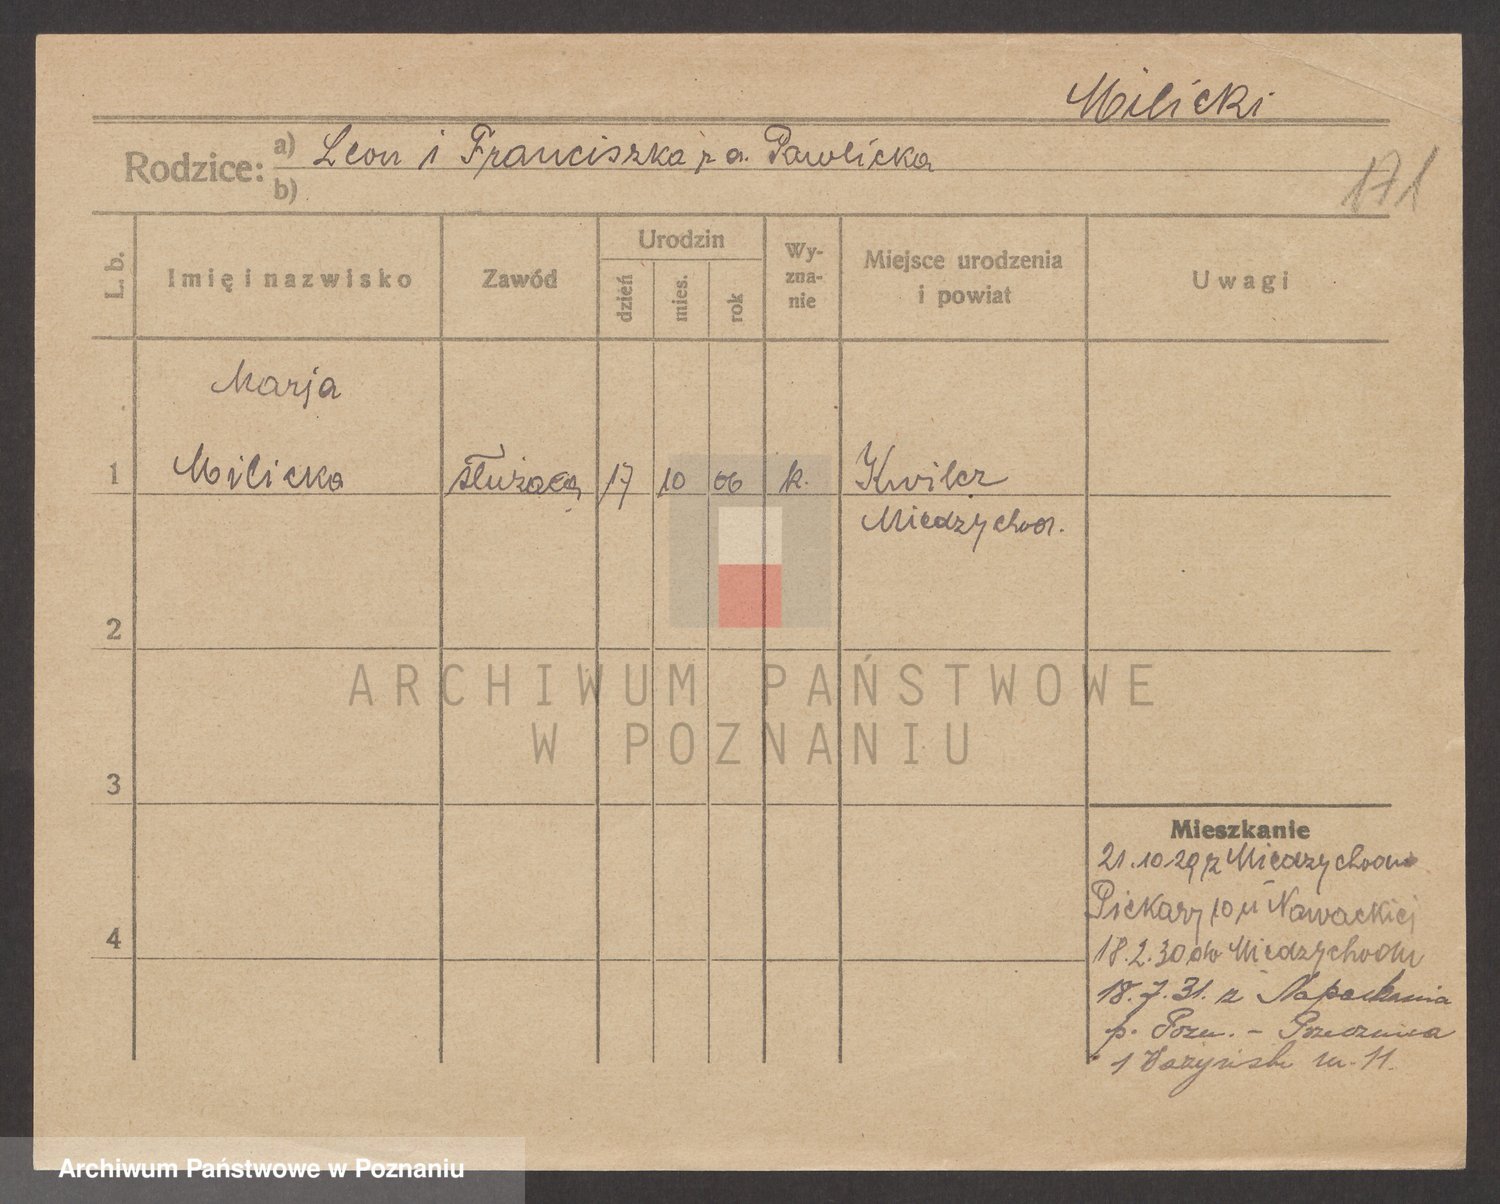 Milicki
Rodzice: a) Leon i Franciszka z d. Pawlicka
b)
171
L. b.
Imię i nazwisko
Zawód
Urodzin
dzień
mies.
rok
Wy-
zna-
nie
Miejsce urodzenia
i powiat
Uwagi
Marja
1 Milicka służąca 17 10 06 k. Kwilcz
Międzychod.
2
3
4
ARCHIWUM PAŃSTWOWE
W POZNANIU
Mieszkanie
21.10.29 z Międzychodu
Piekary 10 u Nawackiej
18.2.30 do Międzychodu
18.7.31. z
p. Pozn. - Przecznica
1 m. 11.
Archiwum Państwowe w Poznaniu